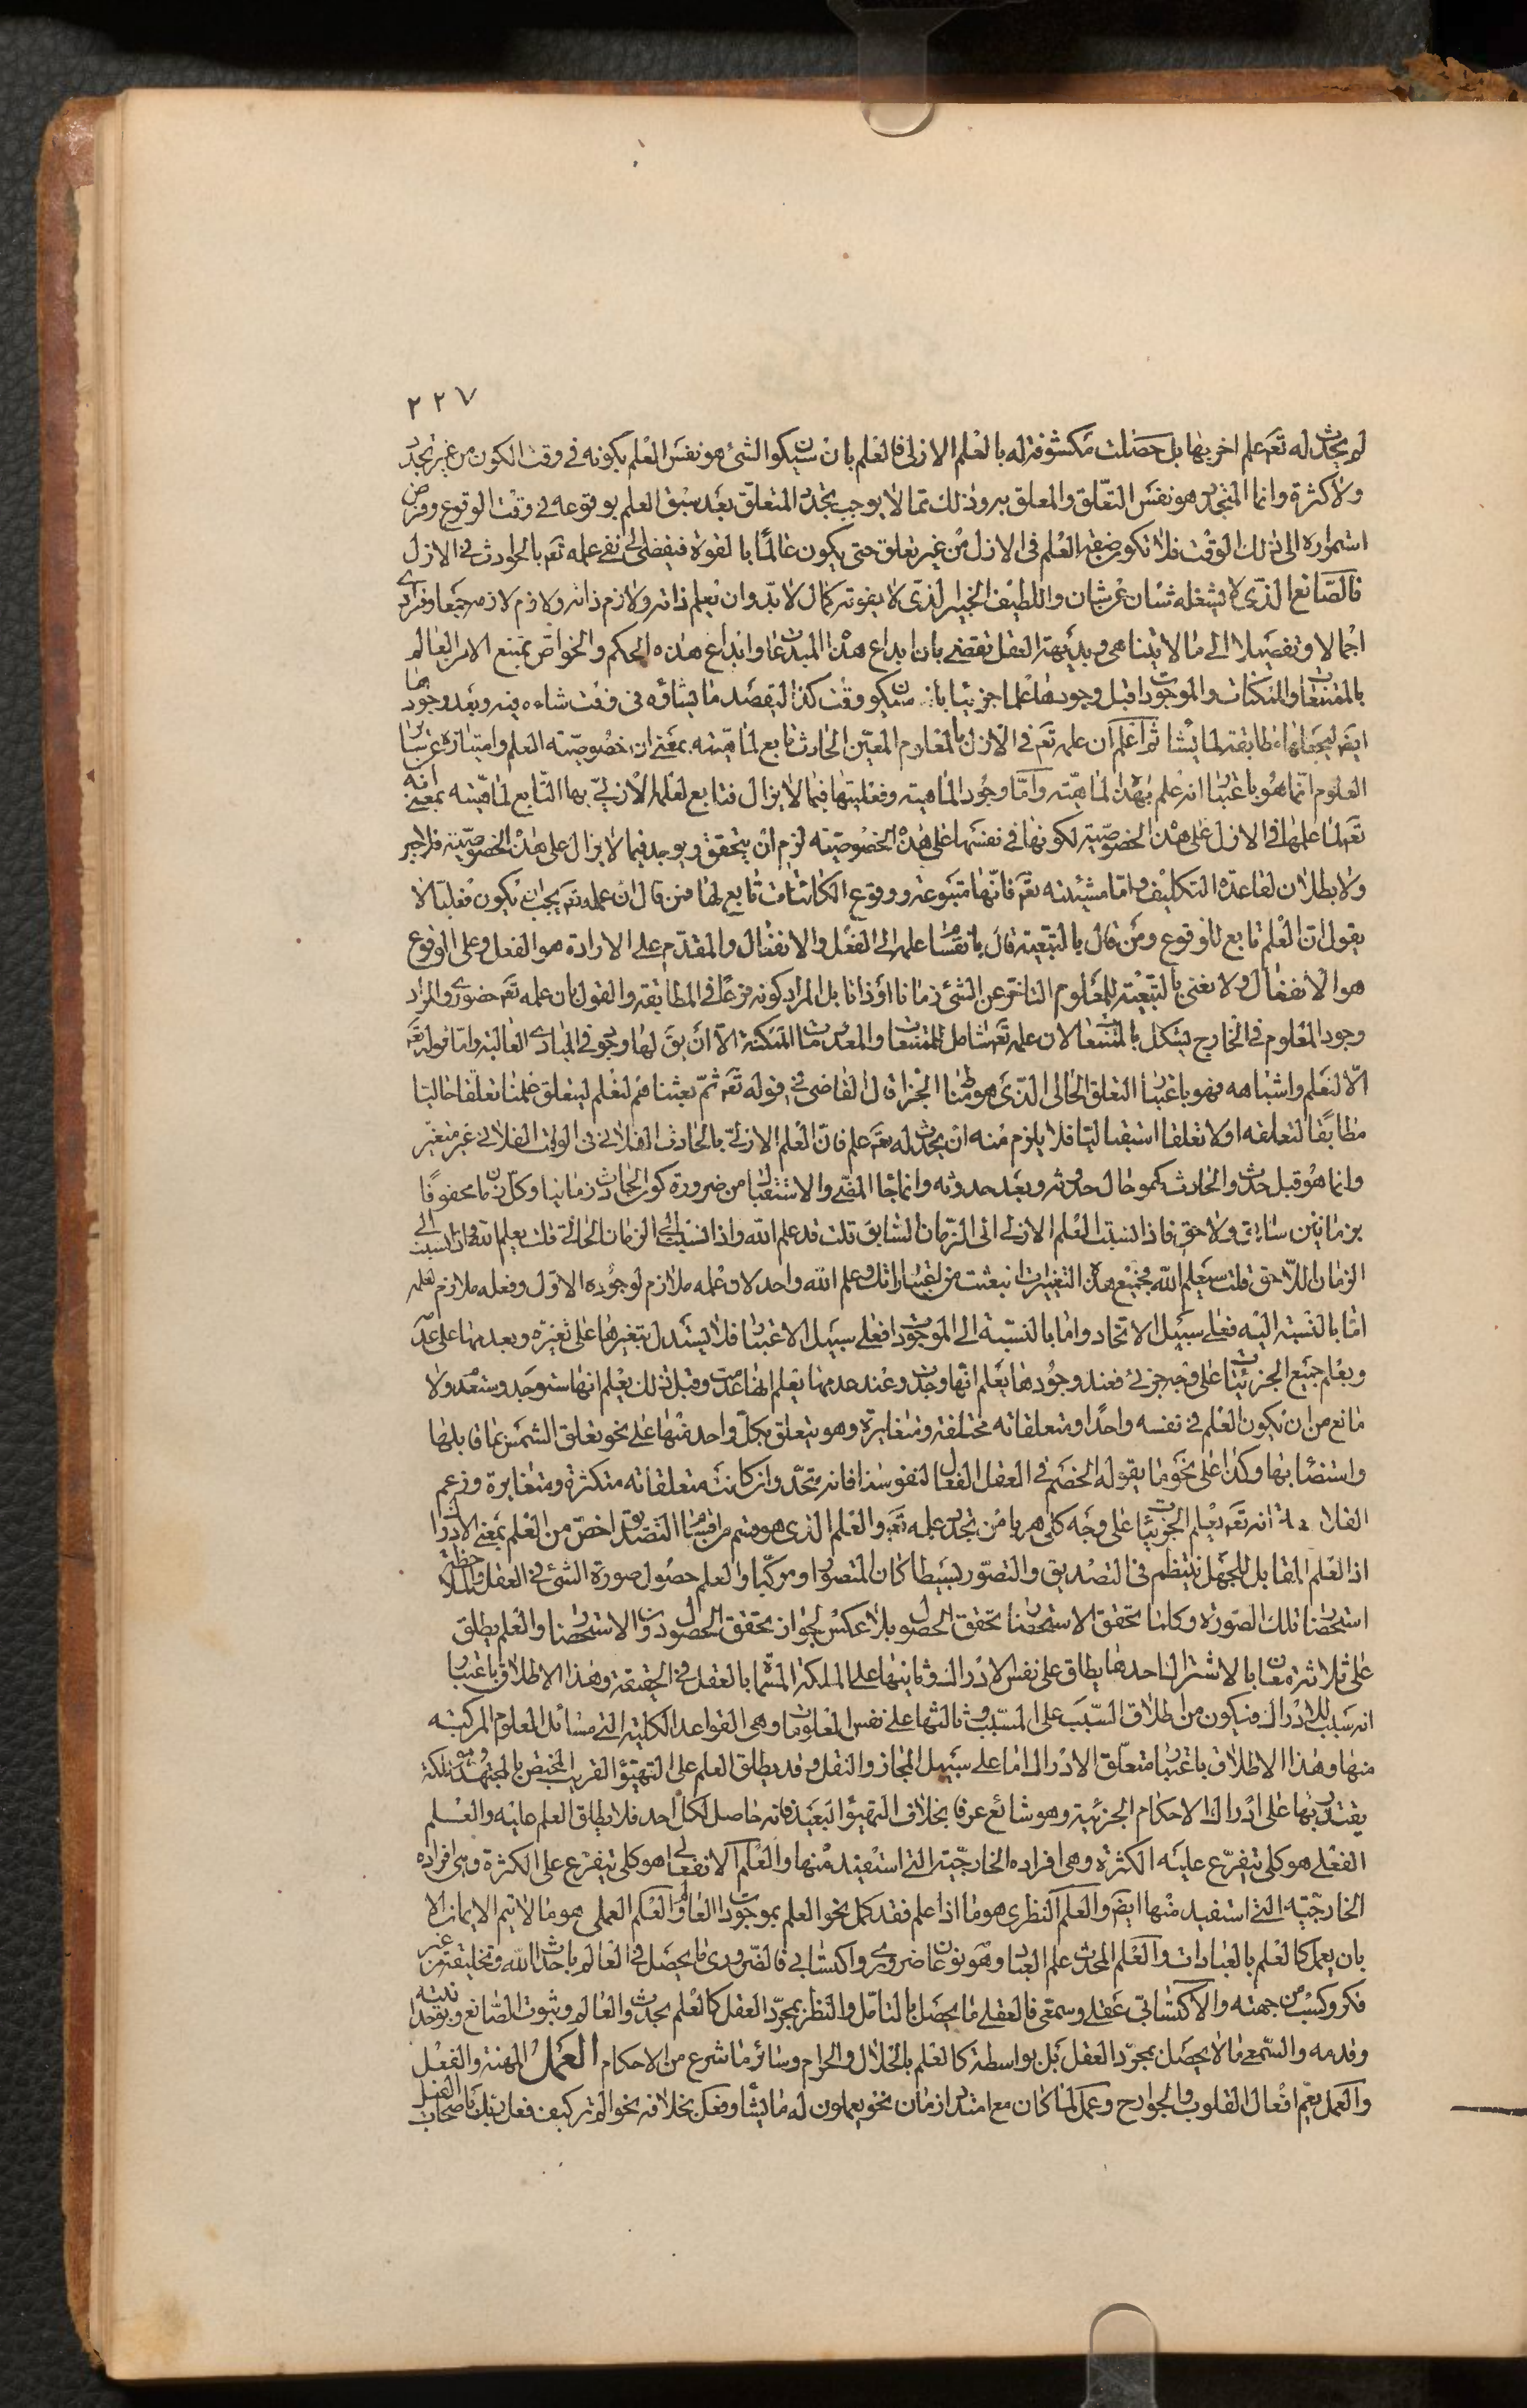 ٢٢٧
لم يحدث له تعم علم اخر بها بل حصلت مكشوفة له بالعلم الازلى فالعلم بان سيكون الشئ هو نفس العلم بكونه فى وقت الكون من غير تجدد
ولا كثرة وانما المتجدد هو نفس التعلق والمعلق به وذلك مما لا يوجب تجدد المتعلق بعد سبق العلم بوقوعه فى وقت الوقوع وفرض
استمراره الى ذلك الوقت فلا تكون صفة العلم فى الازل من غير تعلق حتى يكون عالما بالقوة فيفضى الى نفى علمه تعم بالحوادث فى الازل
فالصانع الذى لا يشغله شان عن شان واللطيف الخبير الذى لا يفوته كمال لا بد وان يعلم ذاته ولازم ذاته ولازم لازمه جمعا وفرادى
اجمالا وتفصيلا الى ما لا يتناهى وبديهة العقل تقضى بان ابداع هذه المبدعات وابداع هذه الحكم والخواص يمتنع الا من العالم
بالممتنعات والممكنات والموجودات قبل وجودها علما جزئيا بان سيكون وقت كذا ليقصد ما يشاؤه فى وقت شاءه فيه وبعد وجودها
ايضا ليجعلها مطابقة لما يشاء ثم اعلم ان علمه تعم فى الازل بالمعلوم المعين الحادث تابع لماهيته بمعنى ان خصوصية العلم وامتيازه عن سائر
العلوم انما هو باعتبار انه علم بهذه الماهية واما وجود الماهية وفعليتها فيما لا يزال فتابع لعلمه الازلى بها التابع لماهيته بمعنى انه
تعم لما علمها فى الازل على هذه الخصوصية لكونها فى نفسها على هذه الخصوصية لزم ان يتحقق ويوجد فيما لا يزال على هذه الخصوصية فلا جبر
ولا بطلان لقاعدة التكليف واما مشيئته تعم فانها متبوعة ووقوع الكائنات تابع لها فمن قال ان علمه تعم يجب ان يكون فعليا لا
يقول ان العلم تابع للوقوع ومن قال بالتبعية قال بانقسام علمه الى الفعل والانفعال والمقدم على الارادة هو الفعل وعلى الوقوع
هو الانفعال ولا نعنى بالتبعية للمعلوم التاخر عن الشئ زمانا او ذاتا بل المراد كونه فرعا فى المطابقة والقول بان علمه تعم حضورى والمراد
وجود المعلوم فى الخارج يشكل بالممتنعات لان علمه تعم شامل للممتنعات والمعدومات الممكنة الا ان يق لها وجود فى المبادى العالية واما قوله تعم
الا لنعلم واشباهه فهو باعتبار التعلق الحالى الذى هو مناط الجزاء قال القاضى فى قوله تعم ثم بعثناهم لنعلم ليتعلق علمنا تعلقا حاليا
مطابقا لتعلقه اولا تعلقا استقباليا فلا يلزم منه ان يحدث له تعم علم فان العلم الازلى بالحادث الفلانى فى الوقت الفلانى غير متغير
وانما هو قبل حدوث الحادث كهو حال حدوثه وبعد حدوثه وانما جاء المضى والاستقبال من ضرورة كون الحادث زمانيا وكل زمان محفوفا
بزمانين سابق ولاحق فاذا نسبت العلم الازلى الى الزمان السابق قلت قد علم الله واذا نسبت الى الزمان الحالى قلت يعلم الله واذا نسبت الى
الزمان اللاحق قلت سيعلم الله فجميع هذه التغيرات انبعثت من اعتباراتك وعلم الله واحد لان علمه ملازم لوجوده الاول وفعله ملازم لعلمه
اما بالنسبة اليه فعلى سبيل الاتحاد واما بالنسبة الى الموجودات فعلى سبيل الاعتبار فلا يستدل بتغيرها على تغيره وبعدمها على عدمه
ويعلم جميع الجزئيات على وجه جزئى فعند وجودها يعلم انها وجدت وعند عدمها يعلم انها عدمت وقبل ذلك يعلم انها ستوجد وستعدم ولا
مانع من ان يكون العلم فى نفسه واحدا ومتعلقاته مختلفة ومتغايرة وهو يتعلق بكل واحد منها على نحو تعلق الشمس بما قابلها
واستضاء بها وكذا على نحو ما يقوله الخصم فى العقل الفعال لنفوسنا فانه متحد وان كانت متعلقاته متكثرة ومتغايرة وزعم
الفلاسفة انه تعم يعلم الجزئيات على وجه كلى هربا من تجدد علمه تعم والعلم الذى هو قسم من اقسام التصديق اخص من العلم بمعنى الادراك
اذ العلم المقابل للجهل ينتظم فى التصديق والتصور بسيطا كان المتصور او مركبا والعلم حصول صورة الشئ فى العقل وملاحظة
استحضار تلك الصورة وكلما تحقق الاستحضار تحقق الحصول بلا عكس لجواز تحقق الحصول دون الاستحضار والعلم يطلق
على ثلاثة معان بالاشتراك احدها يطلق على نفس الادراك وثانيها على الملكة المسماة بالعقل فى الحقيقة وهذا الاطلاق باعتبار
انه سبب للادراك فيكون من اطلاق السبب على المسبب وثالثها على نفس المعلومات وهى القواعد الكلية التى مسائل العلوم المركبة
منها وهذا الاطلاق باعتبار متعلق الادراك اما على سبيل المجاز والنقل وقد يطلق العلم على التهيؤ القريب المختص بالمجتهد وهو ملكة
يقتدر بها على ادراك الاحكام الجزئية وهو شائع عرفا بخلاف التهيؤ البعيد فانه حاصل لكل احد فلا يطلق العلم عليه والعلم
الفعلى هو كلى يتفرع عليه الكثرة وهى افراده الخارجية التى استفيد منها والعلم الانفعالى هو كلى يتفرع على الكثرة وهى افراده
الخارجية التى استفيد منها ايضا والعلم النظرى هو ما اذا علم فقد كمل نحو العلم بموجودات العالم والعلم العملى هو ما لا يتم الايمان الا
بان يعمل كالعلم بالعبادات والعلم المحدث علم العباد وهو نوعان ضرورى واكتسابى فالضرورى ما يحصل فى العالم باحداث الله وتخليقه من غير
فكر وكسب من جهته والاكتسابى عقلى وسمعى فالعقلى ما يحصل بالتامل والنظر بمجرد العقل كالعلم بحدوث العالم وثبوت الصانع وبوحدانيته
وقدمه والسمعى ما لا يحصل بمجرد العقل بل بواسطة كالعلم بالحلال والحرام وسائر ما شرع من الاحكام العمل المهنة والفعل
والعمل يعم افعال القلوب والجوارح وعمل لما كان مع امتداد زمان نحو يعملون له ما يشاء وفعل بخلافه نحو الم تر كيف فعل ربك باصحاب الفيل